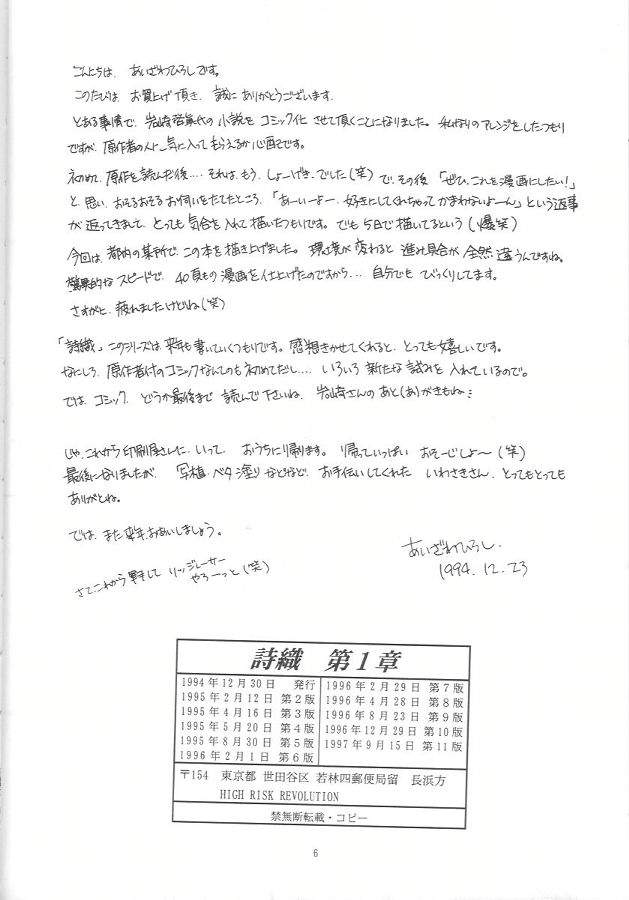 こんにちは、あいざわひろしです。
このたびは、お買上げ頂き、誠にありがとうございます。
とある事情で、岩崎啓眞代の小説を コミック化 させて頂くことになりました。私なりのアレンジをしたつもり
ですが、原作者の人に気に入ってもらえるか心配です。
初めて、原作を読んだ後… それは、もう、しょーげき、でした(笑) で、その後「ぜひ、これを漫画にしたい!」
と、思い、おそるおそるお伺いをたてたところ、「あーいーよー、好きにしてくれちゃって かまわないよーん」という返事
が 返ってきまして、とっても気合を入れて描いたつもりです。でも 5日で描いてるという(爆笑)
今回は、都内の某所で、この本を描き上げました。環境が変わると 進み具合が 全然 違うんですね。
驚異的な スピードで、40頁もの漫画を仕上げたのですから… 自分でも びっくりしてます。
さすがに、疲れましたけどね(笑)
「詩織」このシリーズは、来年も書いていくつもりです。感想きかせてくれると、とっても嬉しいです。
なにしろ、原作者付のコミックなんてのも初めてだし… いろいろ 新たな 試みを 入れているので。
では、コミック、どうか最後まで 読んで下さいね、岩崎さんのあと(あ)がきもね
じゃ、これから印刷屋さんに、いって、おうちに帰ります。帰っていっぱい おそーじしょ〜(笑)
最後になりましたが、写植・ベタ塗りなどなど、お手伝いしてくれた いわさきさん、とってもとっても
ありがとね。
では、また来年、おあいしましょう。
さてこれから リッジレーサー
やろーっと(笑)
あいざわひろし
1994.12.23
詩織 第1章
1994年12月30日 発行
1995年2月12日 第2版
1995年4月16日 第3版
1995年5月20日 第4版
1995年8月30日 第5版
1996年2月1日 第6版
1996年2月29日 第7版
1996年4月28日 第8版
1996年8月23日 第9版
1996年12月29日 第10版
1997年9月15日 第11版
〒154 東京都 世田谷区 若林四郵便局留 長浜方
HIGH RISK REVOLUTION
禁無断転載・コピー
6